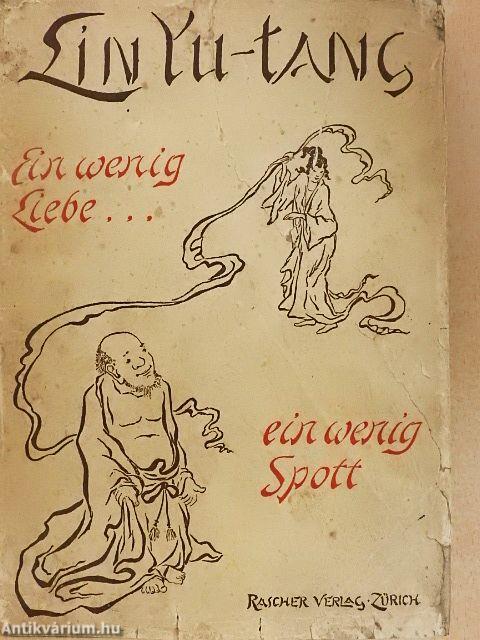 Lin Yu-tang
Ein wenig
Liebe...
ein wenig
Spott
RASCHER VERLAG·ZÜRICH
Antikvárium.hu